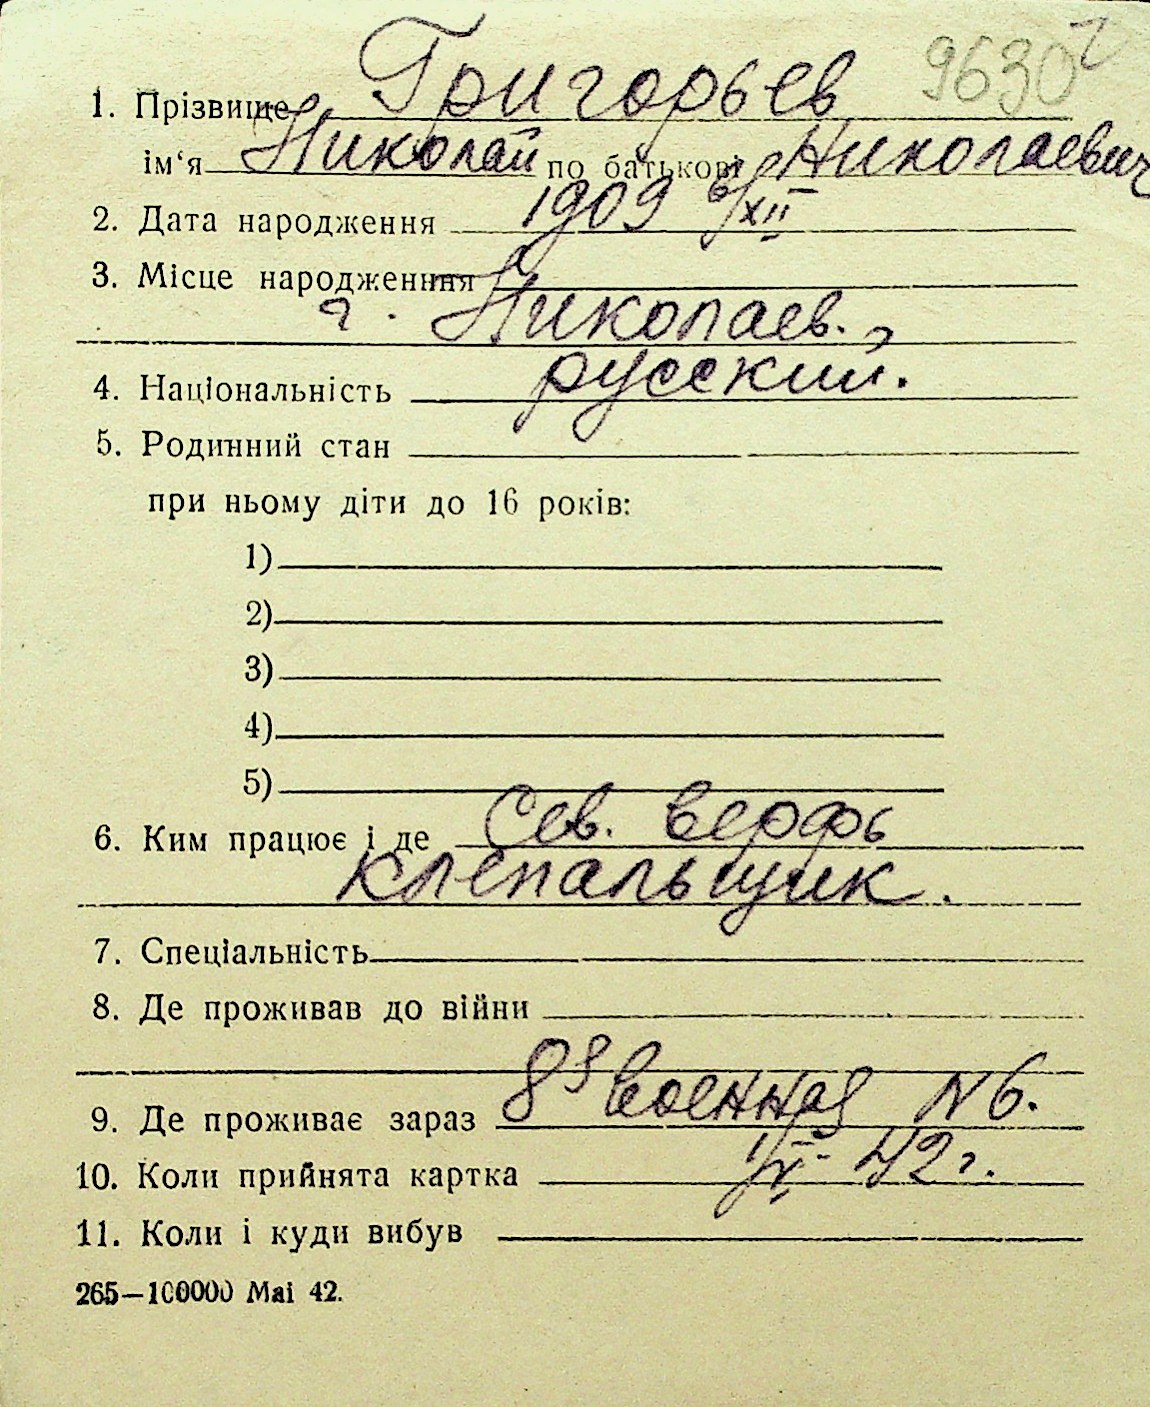 9630
1. Прізвище Григорьев
ім‘я Николай по батькові Николаевич
2. Дата народження 1909 6/XII
3. Місце народженння
г. Николаев.
4. Національність русский.
5. Родинний стан
при ньому діти до 16 років:
1)
2)
3)
4)
5)
6. Ким працює і де Сев. верфь
клепальщик.
7. Спеціальність
8. Де проживав до війни
9. Де проживає зараз 8я Военная N 6.
10. Коли прийнята картка 42 г.
11. Коли і куди вибув
265—100000 Mai 42.